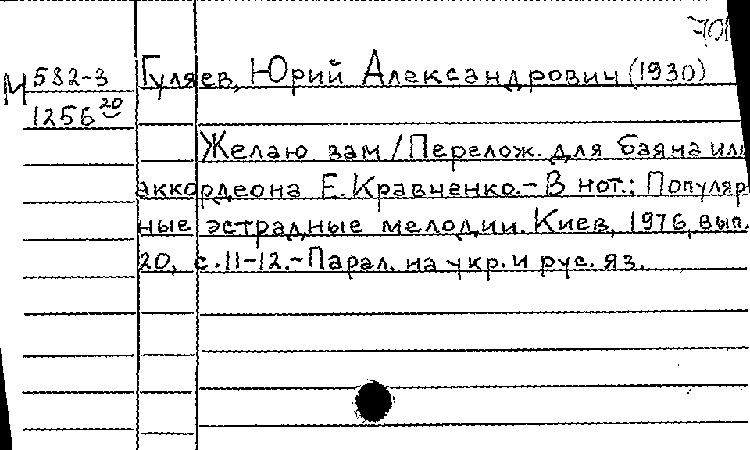 М 582-3 Гуляев, Юрий Александрович (1930)
1256 20
Желаю вам / Перелож. для баяна или
аккордеона Е. Кравченко. - В нот.: Популяр
ные эстрадные мелодии. Киев, 1976, вып.
20, с. 11-12. - Парал. на укр. и рус. яз.